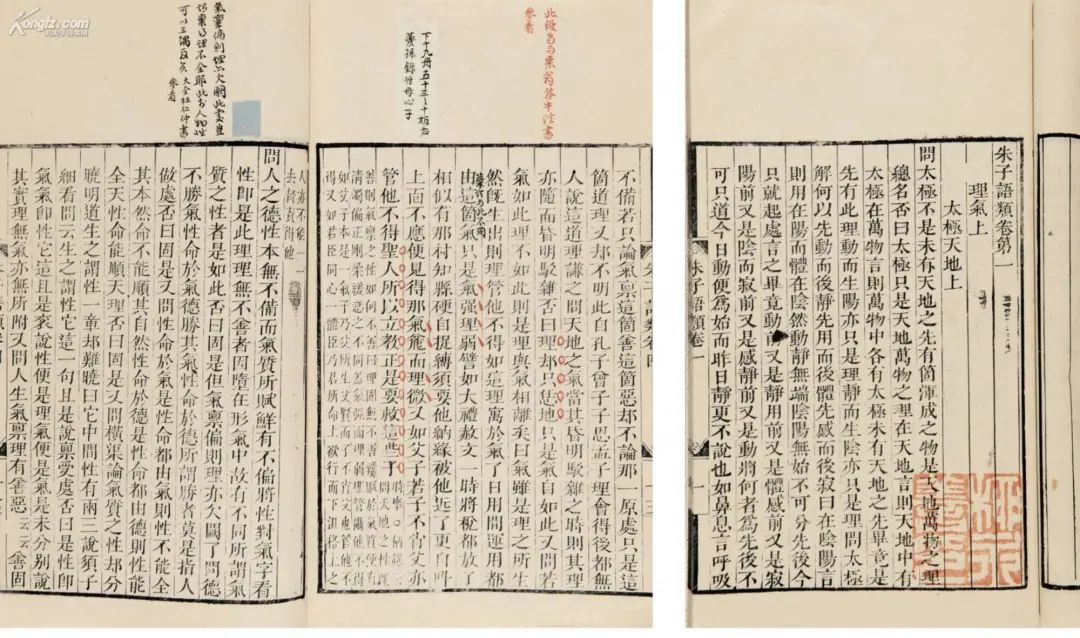 朱子語類卷第一
理氣上
太極天地上
問太極不是未有天地之先有箇渾成之物是天地萬物之理
總名否曰太極只是天地萬物之理在天地言則天地中有
太極在萬物言則萬物中各有太極未有天地之先畢竟是
先有此理動而生陽亦只是理靜而生陰亦只是理問太極
解何以先動而後靜先用而後體先感而後寂曰在陰陽言
則用在陽而體在陰然動靜無端陰陽無始不可分先後今
只就起處言之畢竟動前又是靜用前又是體感前又是寂
陽前又是陰而寂前又是感靜前又是動將何者為先後不
可只道今日動便為始而昨日靜更不說也如鼻息言呼吸
朱子語類卷一
此段當與栗翁答牛溪書
參看
下十九冊五十三十板右
不備若只論氣稟這箇善這箇惡却不論那一原處只是這
箇道理又却不明此自孔子曾子子思孟子理會得後都無
人說這道理謙之問天地之氣當其昏明駁雜之時則其理
亦隨而昏明駁雜否曰理却只恁地只是氣自如此又問若
氣如此理不如此則是理與氣相離矣曰氣雖是理之所生
然既生出則理管他不得如這理寓於氣了日用間運用都
由這箇氣只是氣强理弱譬如大禮赦文一時將稅都放了
相似有那村知縣硬自捉縛須要他納緣被他近了更自叫
上面不應便見得那氣麤而理微又如父子若子不肖父亦
管他不得聖人所以立教正是要救這些子
時舉○柄錄云
問天地之性既
善則氣稟之性如何不善曰理固無不善纔賦於氣質便有
清濁偏正剛柔緩急之不同蓋氣强而理弱理管攝他不得
如父子本是一氣子乃父所生父賢而子不肖父也管他不
得又如君臣同心一體臣乃君所命上欲行而下沮格上之
氣稟偏則理亦欠闕此書
可以三隅反矣
參看
人亦不能一一
去督責得他
問人之德性本無不備而氣質所賦鮮有不偏將性對氣字看
性即是此理理無不善者因墮在形氣中故有不同所謂氣
質之性者是如此否曰固是但氣稟偏則理亦欠闕了問德
不勝氣性命於氣德勝其氣性命於德所謂勝者莫是指人
做處否曰固是又問性命於氣是性命都由氣則性不能全
其本然命不能順其自然性命於德是性命都由德則性能
全天性命能順天理否曰固是又問橫渠論氣質之性却分
曉明道生之謂性一章却難曉曰它中間性有兩三說須子
細看問云生之謂性它這一句且是說稟受處否曰是性即
氣氣即性它這且是衮說性便是理氣便是氣是未分別說
其實理無氣亦無所附又問人生氣稟理有善惡云云善固
Kongfz.com